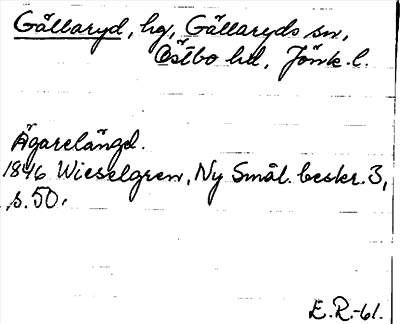 Gällaryd, hg, Gällaryds sn,
Östbo hd, Jönk. l.
Ägarelängd.
1846 Wieselgren, Ny Smål. beskr. 3,
s. 50.
E. R.-61.